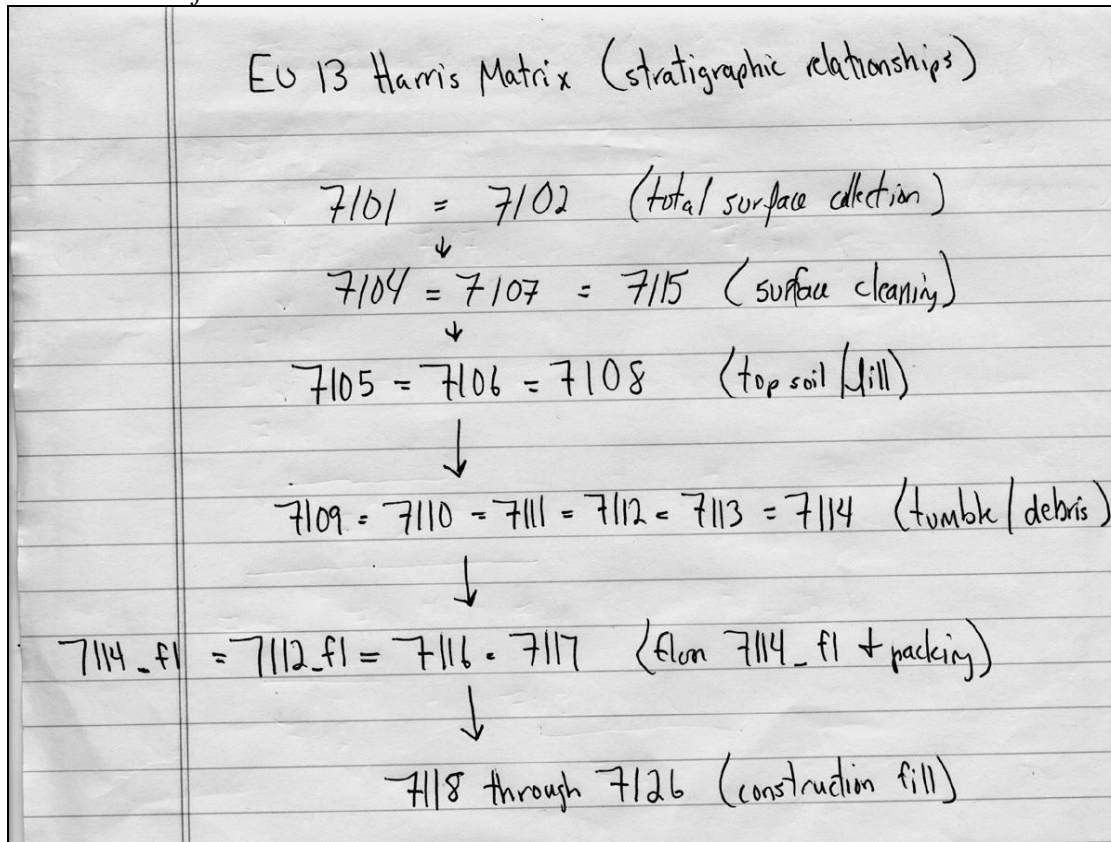 EU 13 Harris Matrix (stratigraphic relationships)
7101 = 7102 (total surface collection)
↓
7104 = 7107 = 7115 (surface cleaning)
↓
7105 = 7106 = 7108 (top soil / fill)
↓
7109 = 7110 = 7111 = 7112 = 7113 = 7114 (tumble / debris)
↓
7114_f1 = 7112_f1 = 7116 = 7117 (floor 7114_f1 + packing)
↓
7118 through 7126 (construction fill)